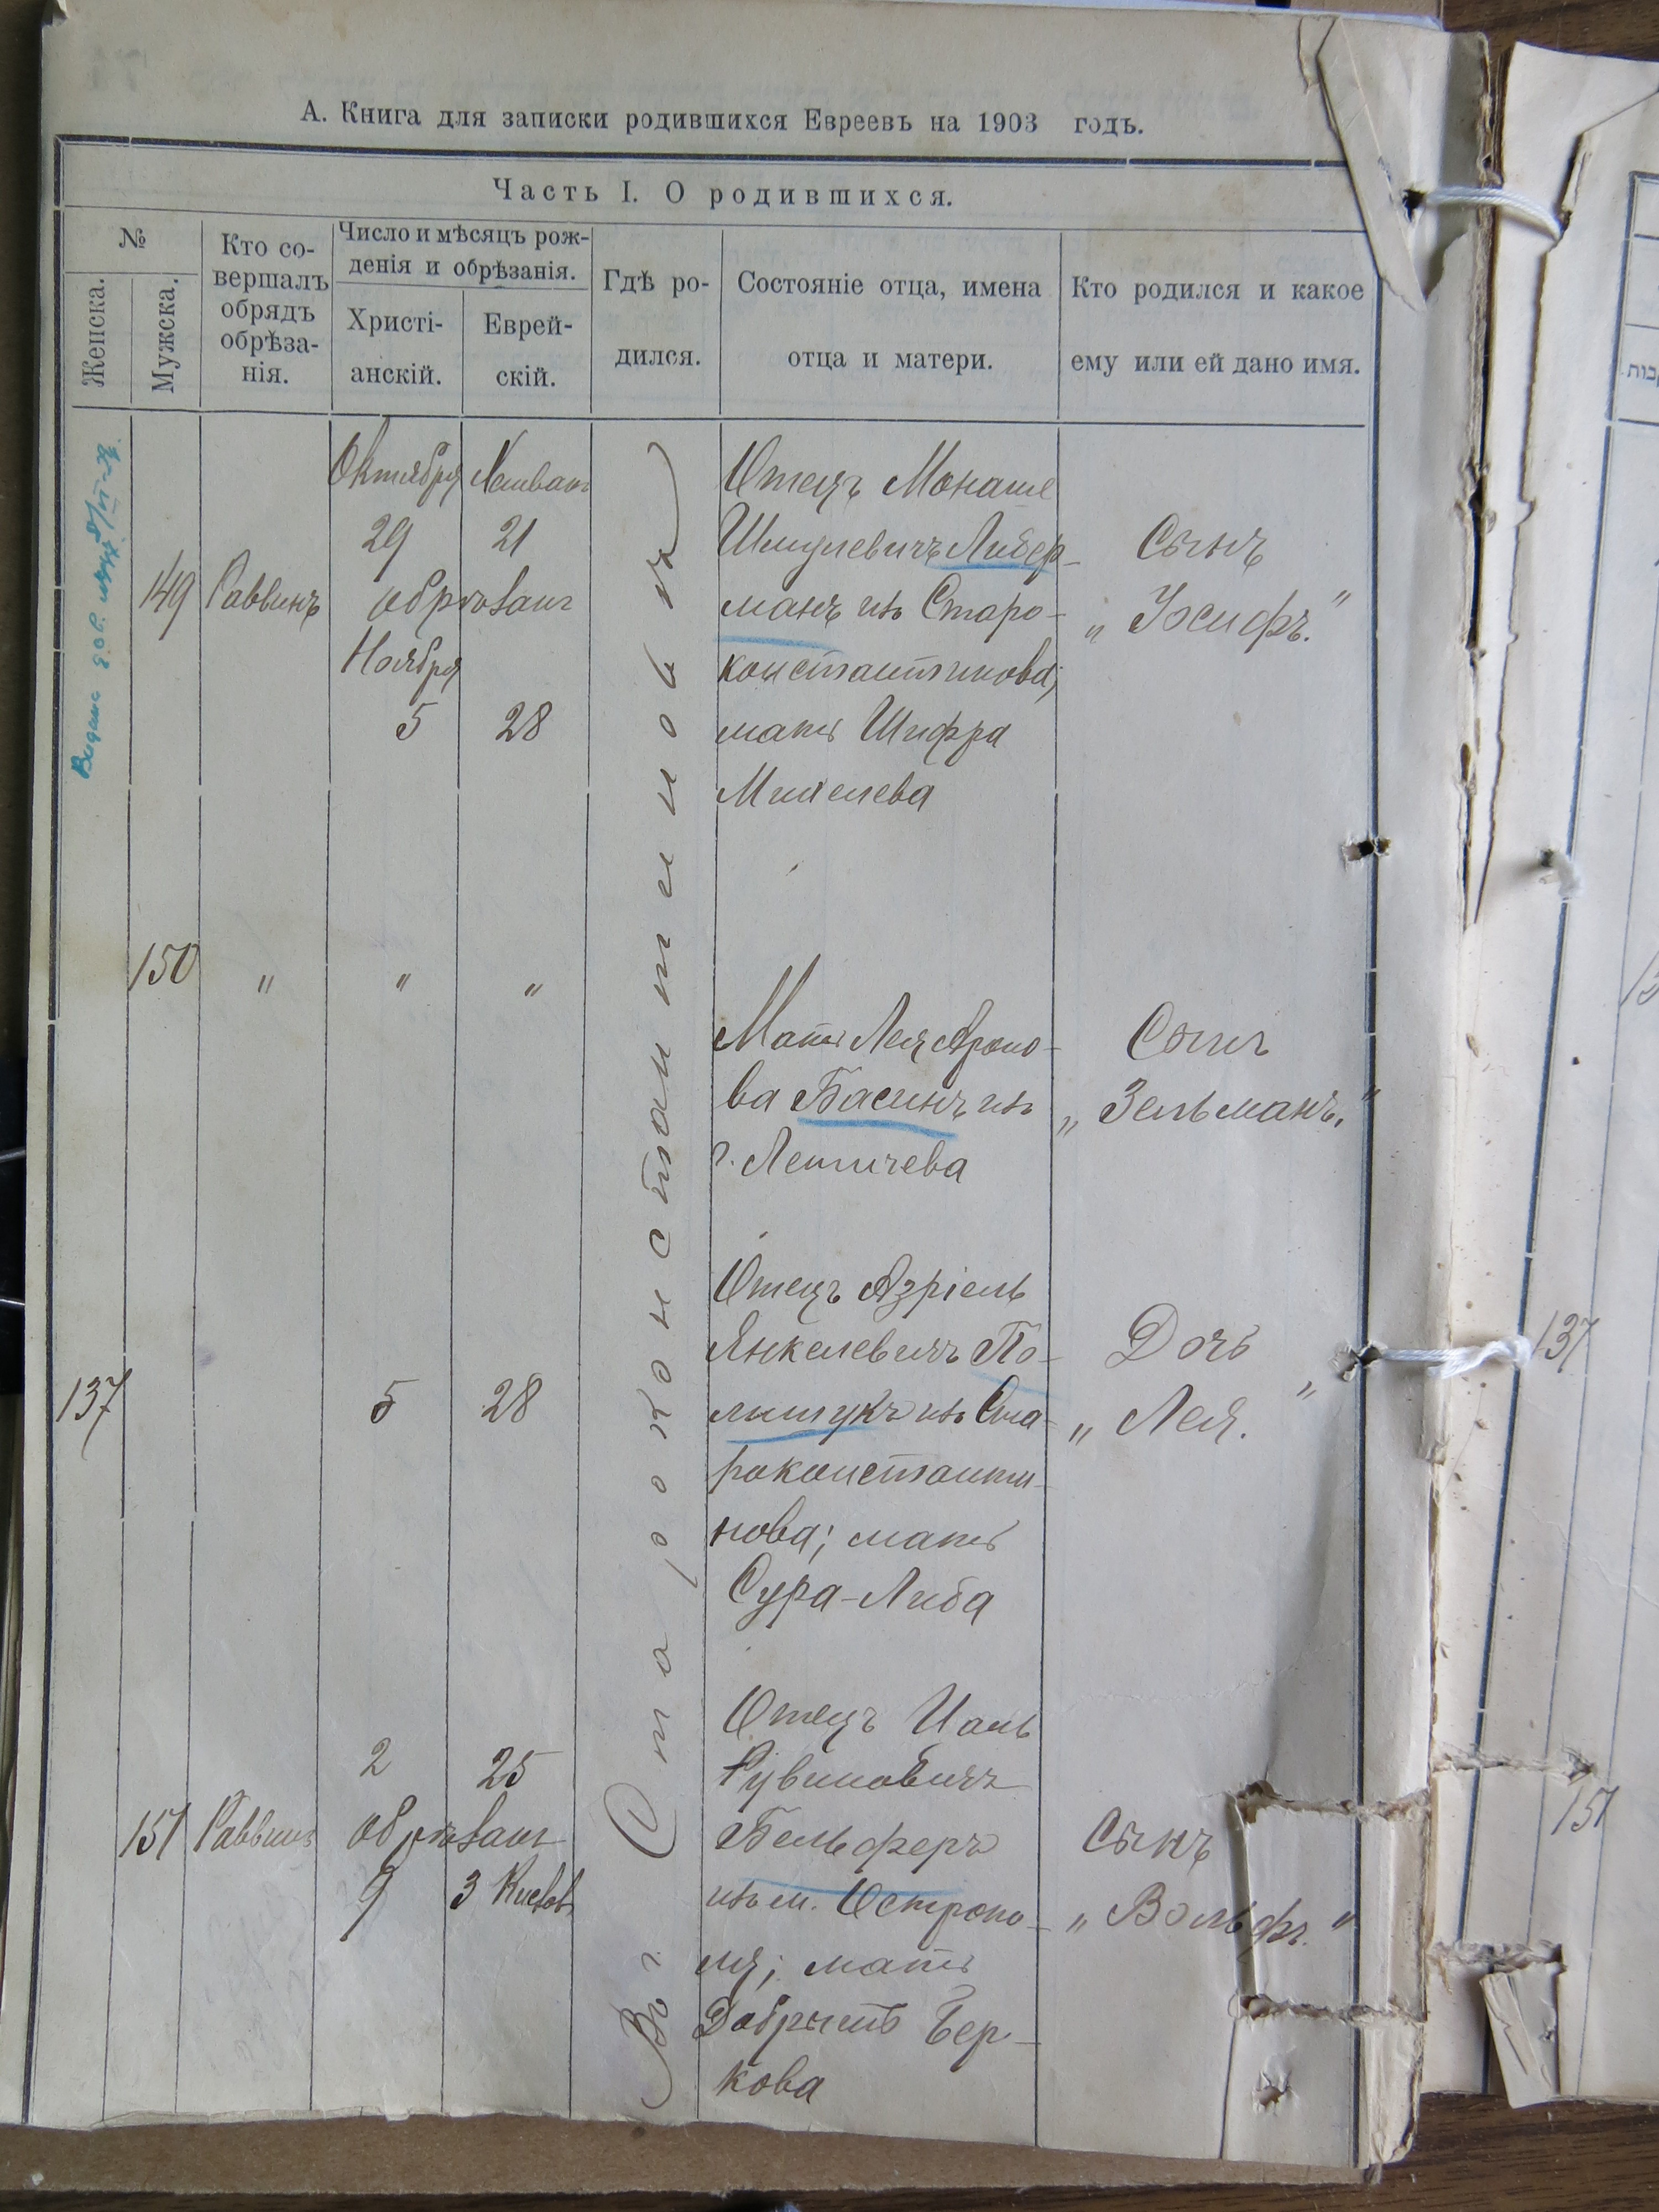 А. Книга для записки родившихся Евреевъ на 1903 годъ.
Часть I. О родившихся.
№
Женска.
Мужска.
Кто со-
вершалъ
обрядъ
обрѣза-
нія.
Число и мѣсяцъ рож-
денія и обрѣзанія.
Христі-
анскій.
Еврей-
скій.
Гдѣ ро-
дился.
Состояніе отца, имена
отца и матери.
Кто родился и какое
ему или ей дано имя.
Въ г. Староконстантиновѣ
149
Раввинъ
Октября Хешванъ
29 21
обрѣзанъ
Ноября
5 28
Отецъ Монаше
Шмулевичъ Либер-
манъ изъ Старо-
константинова;
мать Шифра
Сынъ
„Іосифъ."
150 " " "
Мать Лея Ароно-
ва Басинъ изъ
г. Летичева
Сынъ
„Зельманъ."
137
5 28
Отецъ Азріель
Янкелевичъ По-
лищукъ изъ Ста-
роконстанти-
нова; мать
Сура-Либа
Дочь
„Лея."
151 Раввинъ
2 25
обрѣзанъ
9 3 Кислев.
Отецъ Иоиль
Рувиновичъ
Бельферъ
изъ м. Остропо-
ля; мать
Добрышъ Бер-
кова
Сынъ
„Вольфъ."
137
151